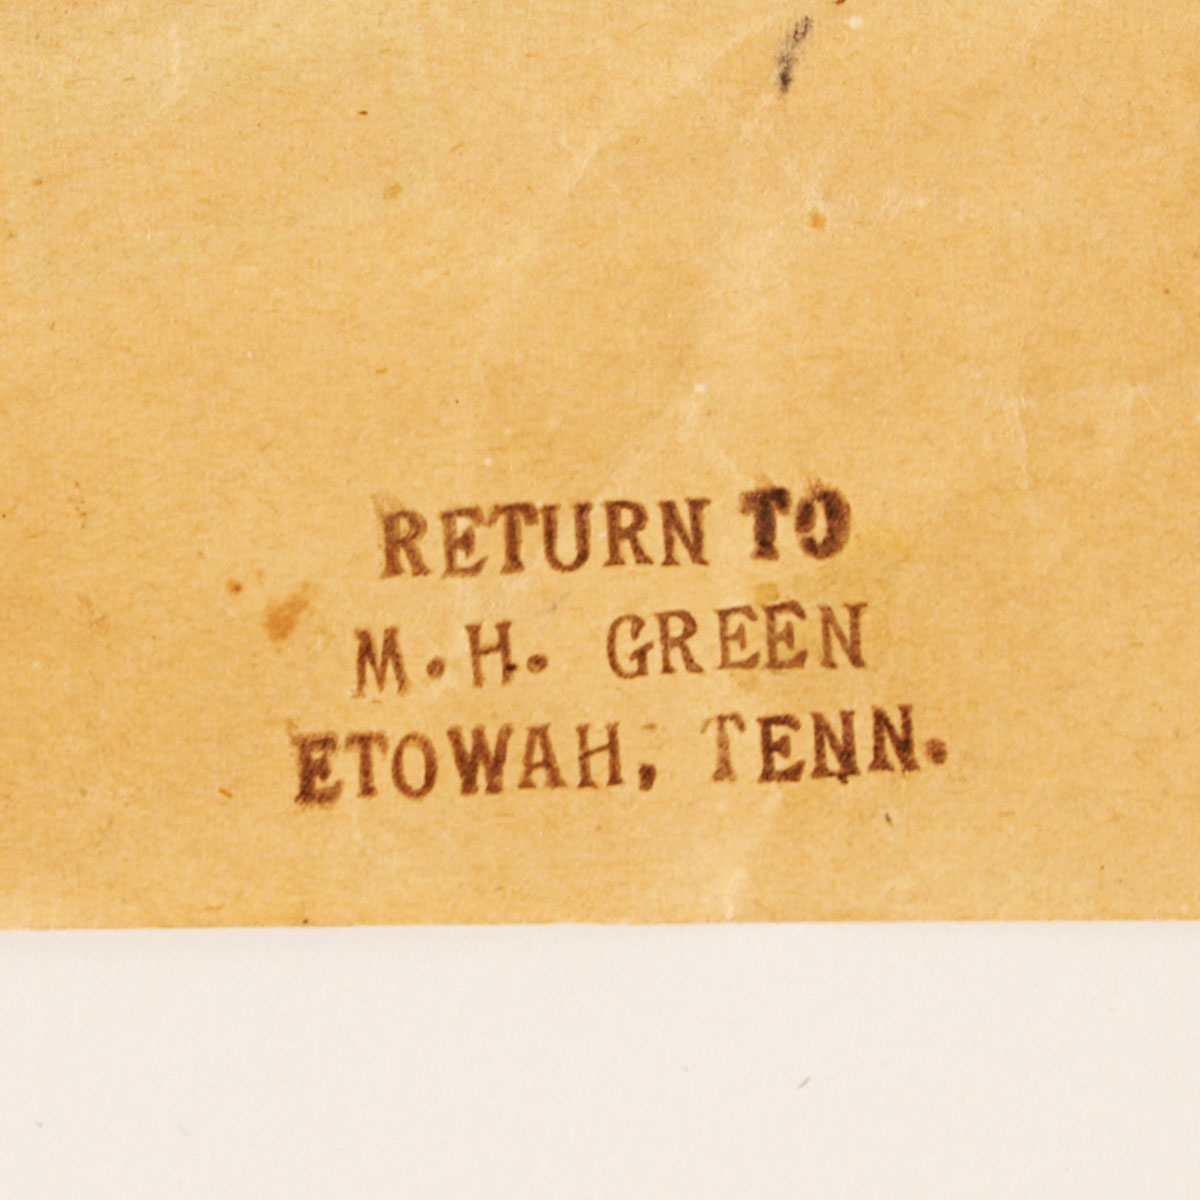 RETURN TO
M. H. GREEN
ETOWAH, TENN.